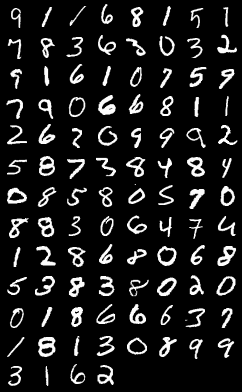 9 1 1 6 8 1 5 1
7 8 3 6 3 0 3 2
9 1 6 1 0 7 5 9
7 9 0 6 6 8 1 1
2 6 2 0 9 9 9 2
5 8 7 3 8 4 8 4
0 8 5 8 0 5 7 0
8 8 3 0 6 4 7 4
1 2 8 6 8 0 6 8
5 3 8 3 8 0 2 0
0 1 8 6 6 6 3 7
1 8 1 3 0 8 9 9
3 1 6 2